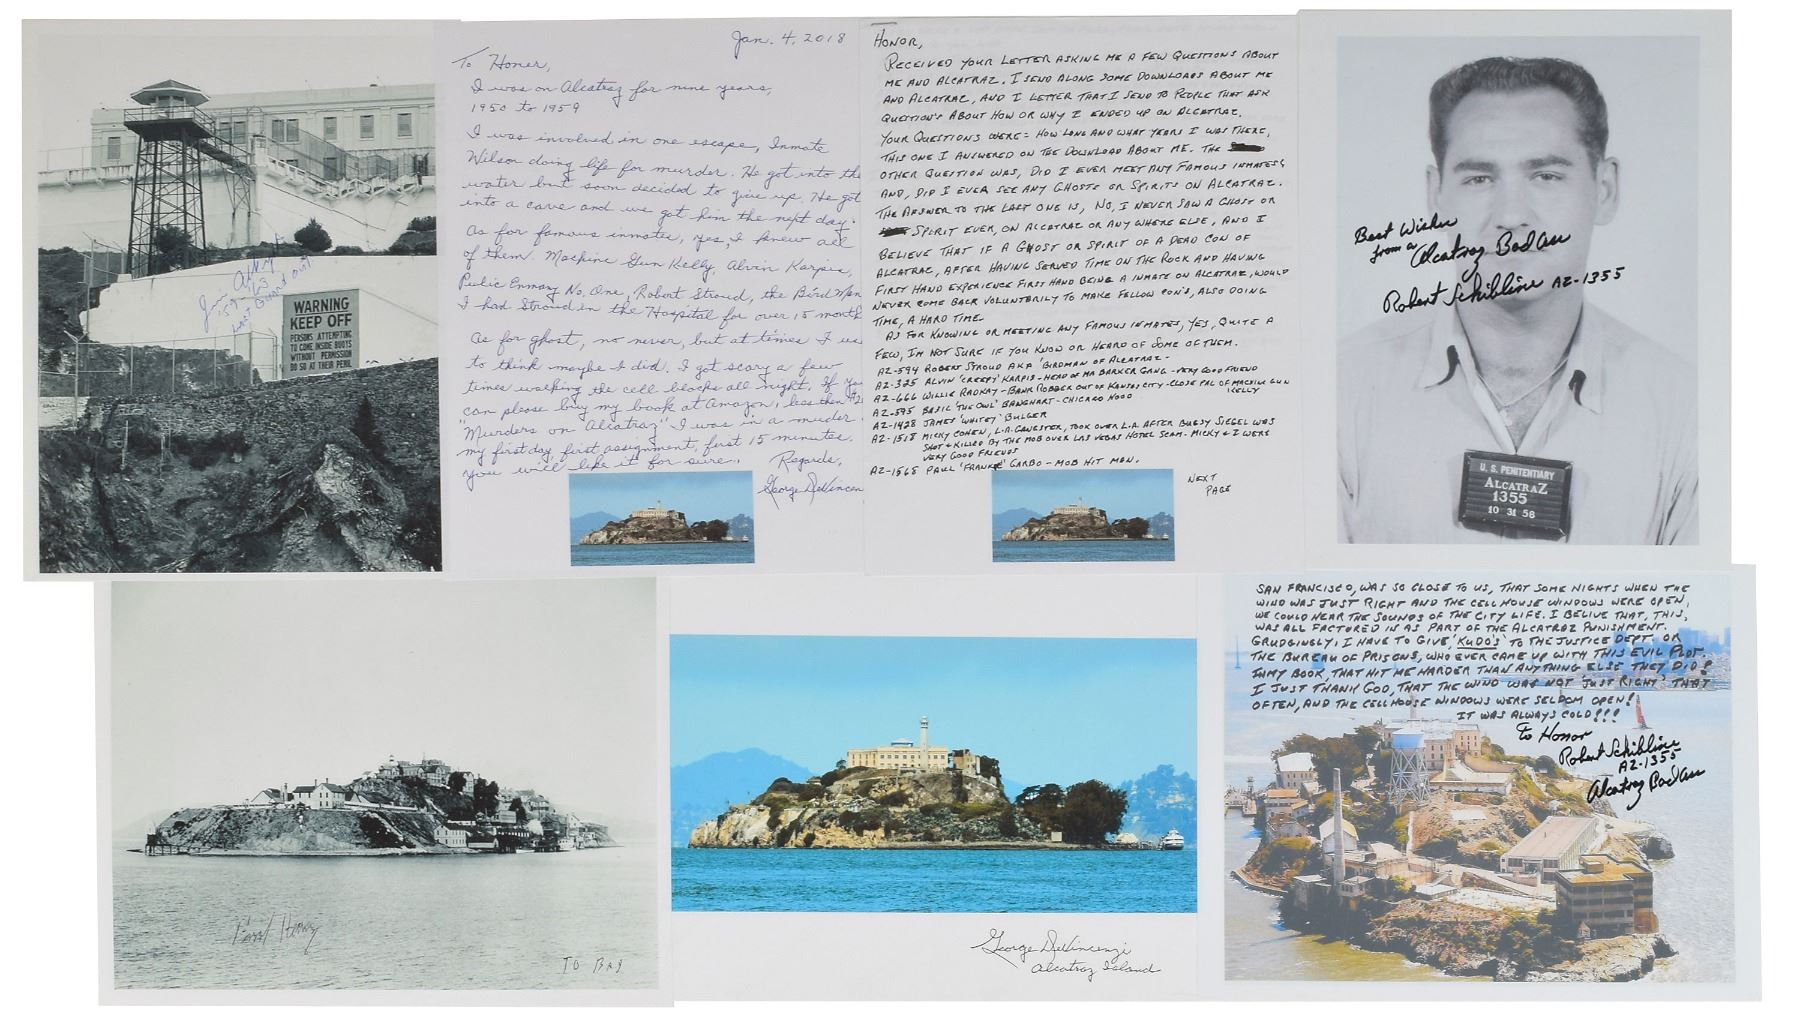 Jim Albright
'59-'63
Last Guard Out!
WARNING
KEEP OFF
PERSONS ATTEMPTING
TO COME INSIDE BUOYS
WITHOUT PERMISSION
DO SO AT THEIR PERIL
Jan. 4, 2018
To Honer,
I was on Alcatraz for nine years,
1950 to 1959
I was involved in one escape, Inmate
Wilson doing life for murder. He got into the
water but soon decided to give up. He got
into a cave and we got him the next day.
As for famous inmates, yes, I knew all
of them. Machine Gun Kelly, Alvin Karpis,
Public Enmany No. One, Robert Stroud, the Bird Man
I had Stroud in the Hospital for over 15 month
As for ghost, no never, but at times I us
to think maybe I did. I got scary a few
times walking the cell blocks all night. If you
can please buy my book at Amazon, less then
"Murders on Alcatraz" I was in a muder
my first day, first assignment, first 15 minutes.
you will like it for sure.,
Regards,
George DeVincen
HONOR,
RECEIVED YOUR LETTER ASKING ME A FEW QUESTIONS ABOUT
ME AND ALCATRAZ. I SEND ALONG SOME DOWNLOADS ABOUT ME
AND ALCATRAZ, AND I LETTER THAT I SEND TO PEOPLE THAT ASK
QUESTION'S ABOUT HOW OR WHY I ENDED UP ON ALCATRAZ.
YOUR QUESTIONS WERE = HOW LONG AND WHAT YEARS I WAS THERE,
THIS ONE I ANSWERED ON THE DOWNLOAD ABOUT ME. THE
OTHER QUESTION WAS, DID I EVER MEET ANY FAMOUS INMATES?
AND, DID I EVER SEE ANY GHOSTS OR SPIRITS ON ALCATRAZ.
THE ANSWER TO THE LAST ONE IS, NO, I NEVER SAW A GHOST OR
SPIRIT EVER, ON ALCATRAZ OR ANY WHERE ELSE, AND I
BELIEVE THAT IF A GHOST OR SPIRIT OF A DEAD CON OF
ALCATRAZ, AFTER HAVING SERVED TIME ON THE ROCK AND HAVING
FIRST HAND EXPERIENCE FIRST HAND BEING A INMATE ON ALCATRAZ, WOULD
NEVER COME BACK VOLUNTARILY TO MAKE FELLOW CON'S, ALSO DOING
TIME, A HARD TIME.
AS FOR KNOWING OR MEETING ANY FAMOUS INMATES, YES, QUITE A
FEW, I'M NOT SURE IF YOU KNOW OR HEARD OF SOME OF THEM.
AZ-594 ROBERT STROUD AKA 'BIRDMAN OF ALCATRAZ -
AZ-325 ALVIN 'CREEPY' KARPIS - HEAD OF MA BARKER GANG - VERY GOOD FRIEND
AZ-666 WILLIE RADKAY - BANK ROBBER OUT OF KANSAS CITY - CLOSE PAL OF MACHIN GUN
KELLY
AZ-595 BASIL 'THE OWL' BANGHART - CHICAGO HOOD
AZ-1428 JAMES 'WHITEY' BULGER
AZ-1518 MICKY COHEN, L.A. GANGSTER, TOOK OVER L.A. AFTER BUGSY SIEGEL WAS
SHOT & KILLED BY THE MOB OVER LAS VEGAS HOTEL SCAM - MICKY & I WERE
VERY GOOD FRIENDS
AZ-1565 PAUL 'FRANKIE' CARBO - MOB HIT MAN.
NEXT
PAGE
Best Wishes
from a Alcatraz Bad Guy
Robert Schibline AZ-1355
U.S. PENITENTIARY
ALCATRAZ
1355
10 31 58
TO BAY
George DeVincenzi
Alcatraz Island
SAN FRANCISCO, WAS SO CLOSE TO US, THAT SOME NIGHTS WHEN THE
WIND WAS JUST RIGHT AND THE CELL HOUSE WINDOWS WERE OPEN,
WE COULD HEAR THE SOUNDS OF THE CITY LIFE. I BELIVE THAT, THIS,
WAS ALL FACTORED IN AS PART OF THE ALCATRAZ PUNISHMENT.
GRUDGINGLY, I HAVE TO GIVE, 'KUDO'S' TO THE JUSTICE DEPT. OR
THE BUREAU OF PRISONS, WHO EVER CAME UP WITH THIS EVIL PLOT.
IN MY BOOK, THAT HIT ME HARDER THAN ANYTHING ELSE THEY DID!
I JUST THANK GOD, THAT THE WIND WAS NOT 'JUST RIGHT' THAT
OFTEN, AND THE CELL HOUSE WINDOWS WERE SELDOM OPEN!
IT WAS ALWAYS COLD!!!
To Honor
Robert Schibline
AZ-1355
Alcatraz Bad Guy